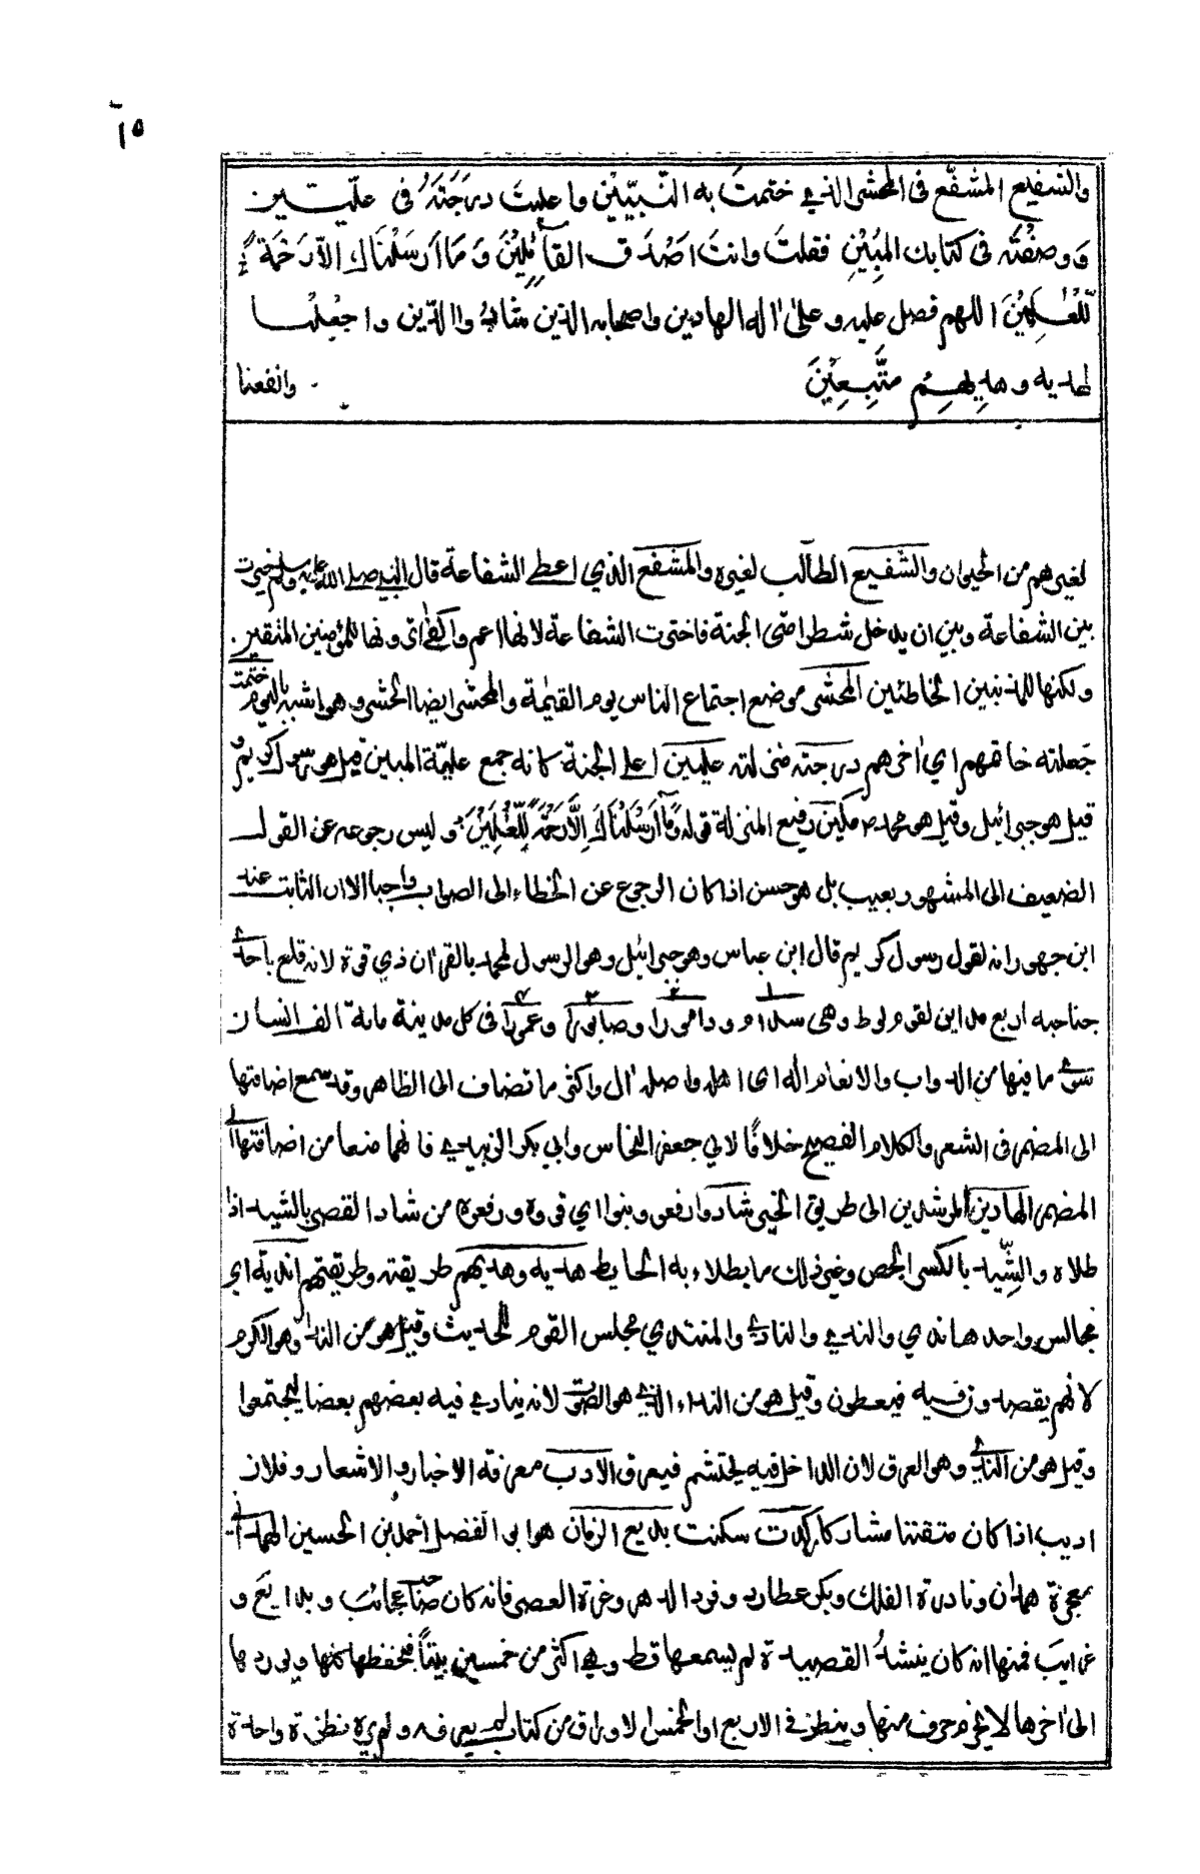 ١٥
والشفيع المشفع في المحشر الذي ختمتَ به النَّبيِّيْن واعليتَ درَجَتَهُ في علّيّين
وَوصفْتَه في كتابك المبِيْنِ فقلتَ وانتَ اصْدَق القَآئِلِيْنَ وَمَا اَرسَلْنَاك اِلّا رَحْمَةً
لّلْعٰلَمِيْنَ اللهم فصل عليه وعلىٰ اٰله الهادين واصحابه الذين شادُوا الدّين واجْعَلْنا
لهديه وهديهِمْ متَّبِعِيْنَ وانفعنا
لغيرهم من الحيوان والشفيع الطالب لغيره والمشفع الذي اعطي الشفاعة قال النبي صلى الله عليه وسلم خيرت
بين الشفاعة وبين ان يدخل شطر امتي الجنة فاخترت الشفاعة لانها اعم واكفى اترونها للمؤمنين المتقين
ولكنها للمذنبين الخاطئين المحشر موضع اجتماع الناس يوم القيٰمة والمحشر ايضا الحشر وهو اشبه باليوم ختمت
جعلته خاتمهم اي اٰخرهم درجته منزلته عليين اعلى الجنة كانه جمع عليّة المبين قيل هو رسول كريم و
قيل هو جبرائيل وقيل هو محمد ص مكين رفيع المنزلة قوله وَمَآ اَرْسَلْنَاكَ اِلَّا رَحْمَةً لِّلْعٰلَمِيْنَ وليس رجوعه عن القول
الضعيف الى المشهور بعيب بل هو حسن اذا كان الرجوع عن الخطاء الى الصواب واجبا الا ان الثابت عند
ابن جهور انه لقول رسول كريم قال ابن عباس وهو جبرائيل وهو الرسول لمحمد بالقراٰن ذي قوة لانه قلع باحدى
جناحيه اربع مداين لقوم لوط وهي سدوم ودامورا وصابورا وعمورا في كل مدينة ماية الف انسان
سوى ما فيها من الدواب والانعام اٰله اي اهله واصله اٰل واكثر ما تضاف الى الظاهر وقد سمع اضافتها
الى المضمر في الشعر والكلام الفصيح خلافًا لابي جعفر النحاس وابي بكر الزبيدي فانهما منعا من اضافتها الى
المضمر الهادين المرشدين الى طريق الخير شادوا رفعوا وبنوا اي قووه ورفعوه من شاد القصر بالشيد اذا
طلاه والشِّيد بالكسر الجص وغير ذلك ما يطلاء به الحايط هديه وهديهم طريقته وطريقتهم اندية اي
مجالس واحدها ندي والندي والنادي والمنتدى مجلس القوم للحديث وقيل هو من الندا وهو الكرم
لانهم يقصدون فيه فيعطون وقيل هو من النداء الذي هو الصوت لانه ينادي فيه بعضهم بعضا ليجتمعوا
وقيل هو من الندى وهو العرق لان الداخل فيه يحتشم فيعرق الادب معرفة الاخبار والاشعار وفلان
اديب اذا كان متقننا مشاركا ركدت سكنت بديع الزمان هو ابو الفضل احمد بن الحسين الهمداني
معجزة همدان ونادرة الفلك وبكر عطارد وفرد الدهر وغرة العصر فانه كان صاحب عجائب وبدايَع و
غرايبَ فمنها انه كان ينشدُ القصيدة لم يسمعها قط وهي اكثر من خمسين بيتاً فيحفظها كلها ويوردها
الى اٰخرها لا يخرم حرف منها وينظر في الاربع او الخمس الاوراق من كتاب لم يعرفه ولم يره نظرة واحدة